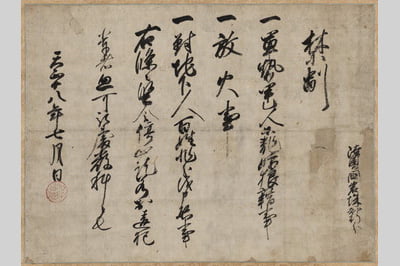 禁制
一軍勢甲乙人等濫妨狼藉事
一放火事
一對地下人百姓非分之儀申懸事
右條々堅令停止訖若於違犯
之輩者忽可被處嚴科者也
天正十八年七月日